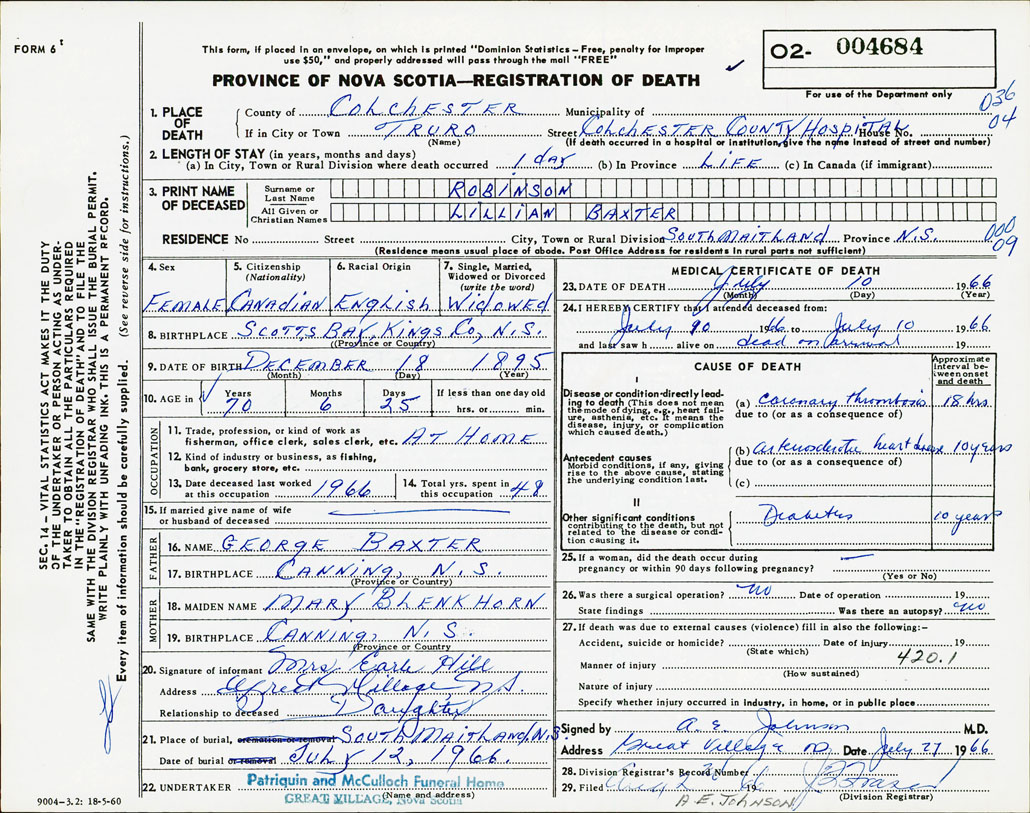 FORM 6
This form, if placed in an envelope, on which is printed "Dominion Statistics – Free, penalty for improper
use $50," and properly addressed will pass through the mail "FREE"
PROVINCE OF NOVA SCOTIA—REGISTRATION OF DEATH
O2- 004684
For use of the Department only
036
04
1. PLACE OF DEATH
County of COLCHESTER Municipality of
If in City or Town TRURO Street COLCHESTER COUNTY HOSPITAL House No.
(Name) (If death occurred in a hospital or institution, give the name instead of street and number)
2. LENGTH OF STAY (in years, months and days)
(a) In City, Town or Rural Division where death occurred 1 day (b) In Province LIFE (c) In Canada (if immigrant)
3. PRINT NAME OF DECEASED
Surname or Last Name ROBINSON
All Given or Christian Names LILLIAN BAXTER
RESIDENCE No Street City, Town or Rural Division SOUTH MAITLAND Province N.S.
(Residence means usual place of abode. Post Office Address for residents in rural parts not sufficient)
000
09
4. Sex FEMALE
5. Citizenship (Nationality) CANADIAN
6. Racial Origin ENGLISH
7. Single, Married, Widowed or Divorced (write the word) WIDOWED
8. BIRTHPLACE SCOTTS BAY, KINGS CO, N.S.
(Province or Country)
9. DATE OF BIRTH DECEMBER 18 1895
(Month) (Day) (Year)
10. AGE in Years 70 Months 6 Days 25 If less than one day old hrs. or min.
OCCUPATION
11. Trade, profession, or kind of work as
fisherman, office clerk, sales clerk, etc. AT HOME
12. Kind of industry or business, as fishing,
bank, grocery store, etc.
13. Date deceased last worked
at this occupation 1966
14. Total yrs. spent in
this occupation 48
15. If married give name of wife
or husband of deceased
FATHER
16. NAME GEORGE BAXTER
17. BIRTHPLACE CANNING, N.S.
(Province or Country)
MOTHER
18. MAIDEN NAME MARY BLENKHORN
19. BIRTHPLACE CANNING, N.S.
(Province or Country)
20. Signature of informant Mrs Earle Hill
Address Great Village, N.S.
Relationship to deceased Daughter
21. Place of burial, cremation or removal SOUTH MAITLAND, N.S.
Date of burial or removal JULY 12, 1966
22. UNDERTAKER Patriquin and McCulloch Funeral Home
(Name and address)
GREAT VILLAGE, Nova Scotia
9004–3.2: 18-5-60
MEDICAL CERTIFICATE OF DEATH
23. DATE OF DEATH July 10 1966
(Month) (Day) (Year)
24. I HEREBY CERTIFY that I attended deceased from:
July 10 1966 to July 10 1966
and last saw h alive on dead on arrival 19
CAUSE OF DEATH
Approximate interval between onset and death
I
Disease or condition directly leading to death (This does not mean
the mode of dying, e.g., heart failure, asthenia, etc. It means the
disease, injury, or complication
which caused death.)
(a) coronary thrombosis 18 hrs.
due to (or as a consequence of)
Antecedent causes
Morbid conditions, if any, giving
rise to the above cause, stating
the underlying condition last.
(b) heart 10 years
due to (or as a consequence of)
(c)
II
Other significant conditions
contributing to the death, but not
related to the disease or condition causing it.
Diabetes 10 years
25. If a woman, did the death occur during
pregnancy or within 90 days following pregnancy?
(Yes or No)
26. Was there a surgical operation? No Date of operation 19
State findings Was there an autopsy? No
27. If death was due to external causes (violence) fill in also the following:–
Accident, suicide or homicide? Date of injury 19
(State which)
420.1
Manner of injury
(How sustained)
Nature of injury
Specify whether injury occurred in industry, in home, or in public place
Signed by A. E. Johnson M.D.
Address Great Village Date July 27 1966
28. Division Registrar's Record Number
29. Filed 19
(Division Registrar)
A E. JOHNSON
SEC. 14 – VITAL STATISTICS ACT MAKES IT THE DUTY
OF THE UNDERTAKER OR PERSON ACTING AS UNDER-
TAKER TO OBTAIN ALL THE PARTICULARS REQUIRED
IN THE "REGISTRATION OF DEATH" AND TO FILE THE
SAME WITH THE DIVISION REGISTRAR WHO SHALL ISSUE THE BURIAL PERMIT.
WRITE PLAINLY WITH UNFADING INK. THIS IS A PERMANENT RECORD.
Every item of information should be carefully supplied. (See reverse side for instructions.)